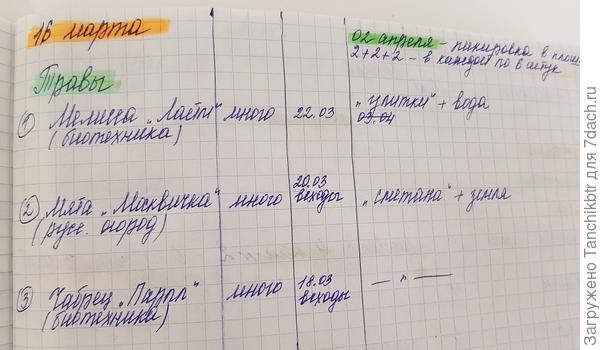 16 марта
02 апреля - пикировка в
2+2+2 - в каждой по 6 штук
Травы
① Мелисса „Ласти" много 22.03 „улитки" + вода
(биотехника) 03.04
② Мята „Москвичка" много 20.03 всходы „сметана" + земля
(русс. огород)
③ Чабрец „Парыл" много 18.03 всходы — „ —
(биотехника)
Загружено Tanchikbtr для 7dach.ru